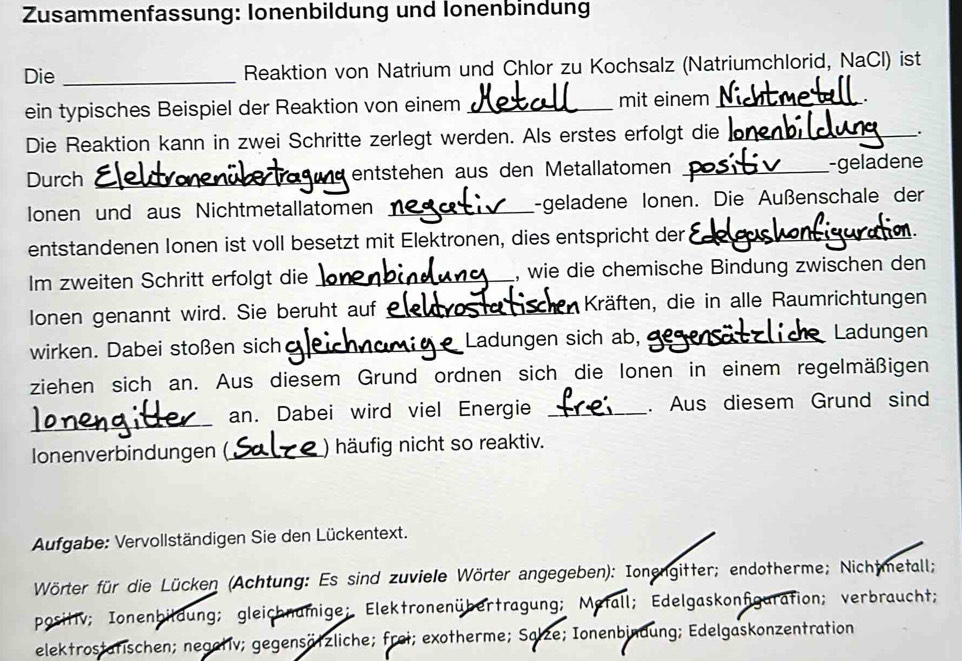 Zusammenfassung: Ionenbildung und Ionenbindung
Die ____________ Reaktion von Natrium und Chlor zu Kochsalz (Natriumchlorid, NaCl) ist
ein typisches Beispiel der Reaktion von einem Metall mit einem Nichtmetall.
Die Reaktion kann in zwei Schritte zerlegt werden. Als erstes erfolgt die Ionenbildung.
Durch Elektronenübertragung entstehen aus den Metallatomen positiv-geladene
Ionen und aus Nichtmetallatomen negativ-geladene Ionen. Die Außenschale der
entstandenen Ionen ist voll besetzt mit Elektronen, dies entspricht der Edelgaskonfiguration.
Im zweiten Schritt erfolgt die Ionenbindung, wie die chemische Bindung zwischen den
Ionen genannt wird. Sie beruht auf elektrostatischen Kräften, die in alle Raumrichtungen
wirken. Dabei stoßen sich gleichnamige Ladungen sich ab, gegensätzliche Ladungen
ziehen sich an. Aus diesem Grund ordnen sich die Ionen in einem regelmäßigen
Ionengitter an. Dabei wird viel Energie frei. Aus diesem Grund sind
Ionenverbindungen (Salze) häufig nicht so reaktiv.
Aufgabe: Vervollständigen Sie den Lückentext.
Wörter für die Lücken (Achtung: Es sind zuviele Wörter angegeben): Ionengitter; endotherme; Nichtmetall;
positiv; Ionenbildung; gleichnamige; Elektronenübertragung; Metall; Edelgaskonfiguration; verbraucht;
elektrostatischen; negativ; gegensätzliche; frei; exotherme; Salze; Ionenbindung; Edelgaskonzentration